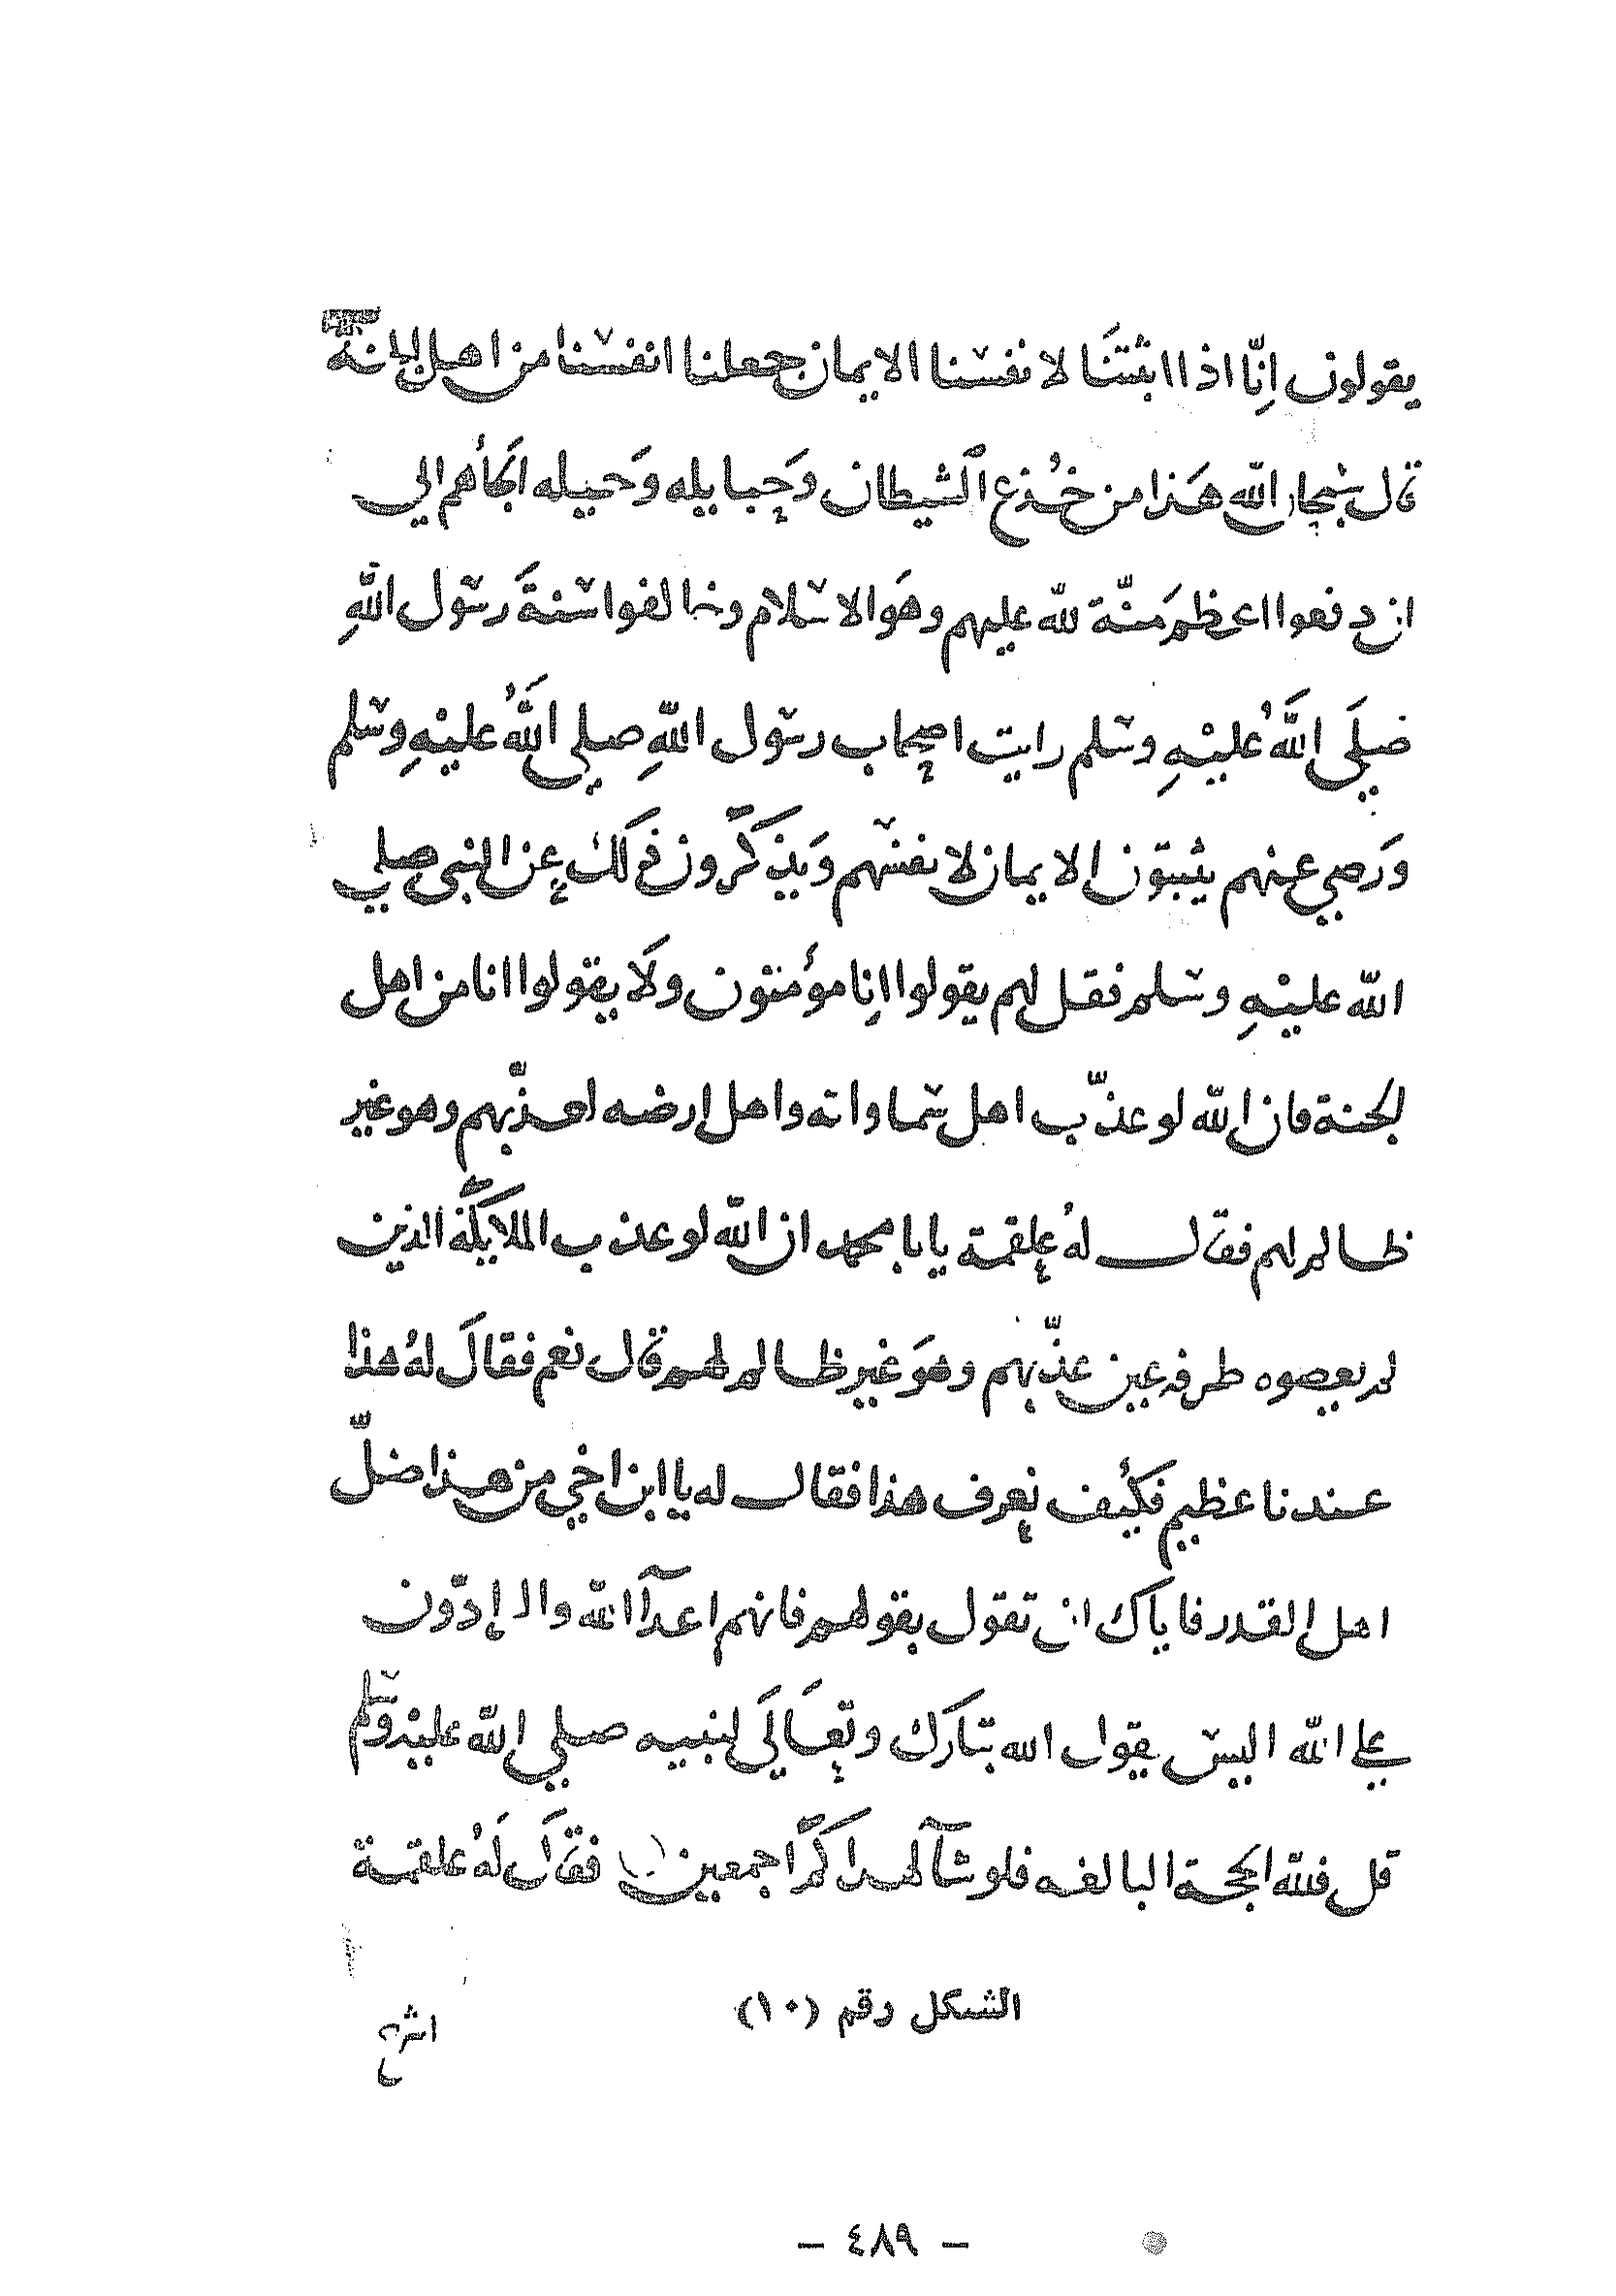 يقولون اِنّا اذا اثبتنَا لانفسنا الايمان جعلنا انفسنا من اهل الجنة
قال سُبحان الله هَذا من خُدع الشيطان وَحبايله وَحيله الجأهم الي
ان دفعوا اعظم مَنّة لله عليهم وهَو الاسلام وخالفوا سنةَ رسول اللهِ
صَلَى اللَّهُ عليْهِ وسلم رايت اصحاب رسول اللهِ صلي اللَّهُ عليْهِ وسلم
وَرضي عنهم يثبتون الايمان لانفسهم وَيذكَرون ذَلك عن النبي صلي
الله عليْهِ وسلم فقل لهم يقولوا اِنا مؤمنون ولَا يقولوا انا من اهل
لجنة فان الله لو عذّب اهل سماواته واهل ارضه لعذّبهم وهو غير
ظالم لهم فقال لهُ علقمة يا با محمد ان الله لو عذب الملايكَة الذين
لم يعصوه طرفه عين عذّبهم وهوَ غير ظالم لهم قال نعم فقالَ لهُ هذا
عندنا عظيم فكيُف نعرف هذا فقال له يا ابن اخي من هذا ضلّ
اهل القدر فاياَك ان تقول بقولهم فانهم اعدآ الله والرادّون
علي الله اليس يقول الله تبَارك وتعَالَى لنبيه صلي الله عليه وسلم
قل فلله الحجة البالغه فلو شآ لهداكَم اجمعين فقَال لَهُ علقمة
اشرح
الشكل رقم (١٠)
— ٤٨٩ —